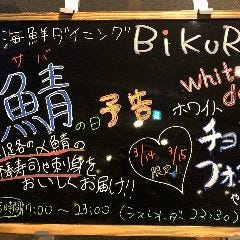 海鮮ダイニング BiKUR
サバ
鯖の日 予告
white
ホワイト
チョ
フォ
3/14 3/15
限定
〆鯖の
寿司や刺身を
おいしくお届け!!
時間 17:00～23:00 (ラストオーダー 22:30)